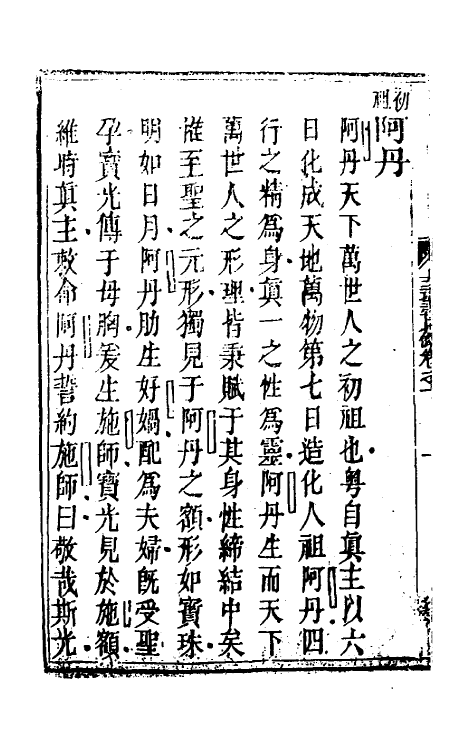 初祖
阿丹
阿丹天下萬世人之初祖也粤自真主以六
日化成天地萬物第七日造化人祖阿丹四
行之精為身真一之性為靈阿丹生而天下
萬世人之形理皆秉賦于其身性締結中矣
惟至聖之元形獨見于阿丹之額形如寶珠
明如日月阿丹肋生好媧配為夫婦旣受聖
孕寶光傳于母胸爰生施師寶光見於施額
維時真主敕命阿丹誓約施師曰敬哉斯光